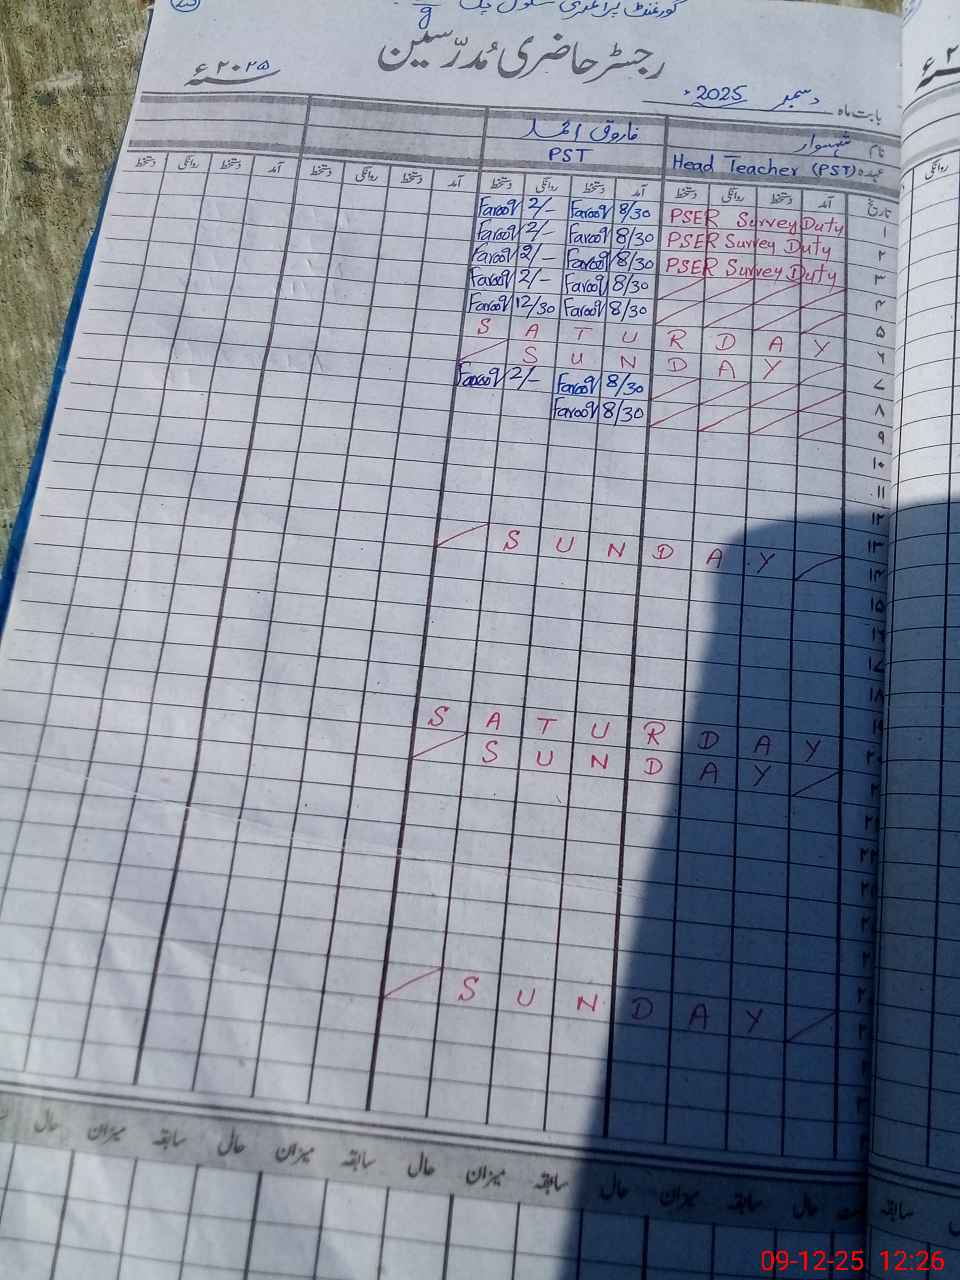 گورنمنٹ پرائمری سکول چک
رجسٹر حاضری مُدرّسین
۲۰۲۵ء
بابت ماہ دسمبر 2025ء
نام شہسوار فاروق احمد
عہدہ Head Teacher (PST) PST
تاریخ آمد دستخط روانگی دستخط آمد دستخط روانگی دستخط آمد دستخط روانگی دستخط آمد دستخط روانگی دستخط
Farooq 2/- Farooq 8/30 PSER Survey Duty ۱
Farooq 2/- Farooq 8/30 PSER Survey Duty ۲
Farooq 2/- Farooq 8/30 PSER Survey Duty ۳
Farooq 2/- Farooq 8/30 ۴
Farooq 12/30 Farooq 8/30 ۵
S A T U R D A Y ۶
S U N D A Y ۷
Farooq 2/- Farooq 8/30 ۸
Farooq 8/30 ۹
۱۰
۱۱
۱۲
۱۳
S U N D A Y ۱۴
۱۵
۱۶
۱۷
۱۸
۱۹
S A T U R D A Y ۲۰
S U N D A Y
S U N D A Y
سابقہ حال میزان سابقہ حال میزان سابقہ حال میزان سابقہ حال میزان سابقہ حال
09-12-25 12:26